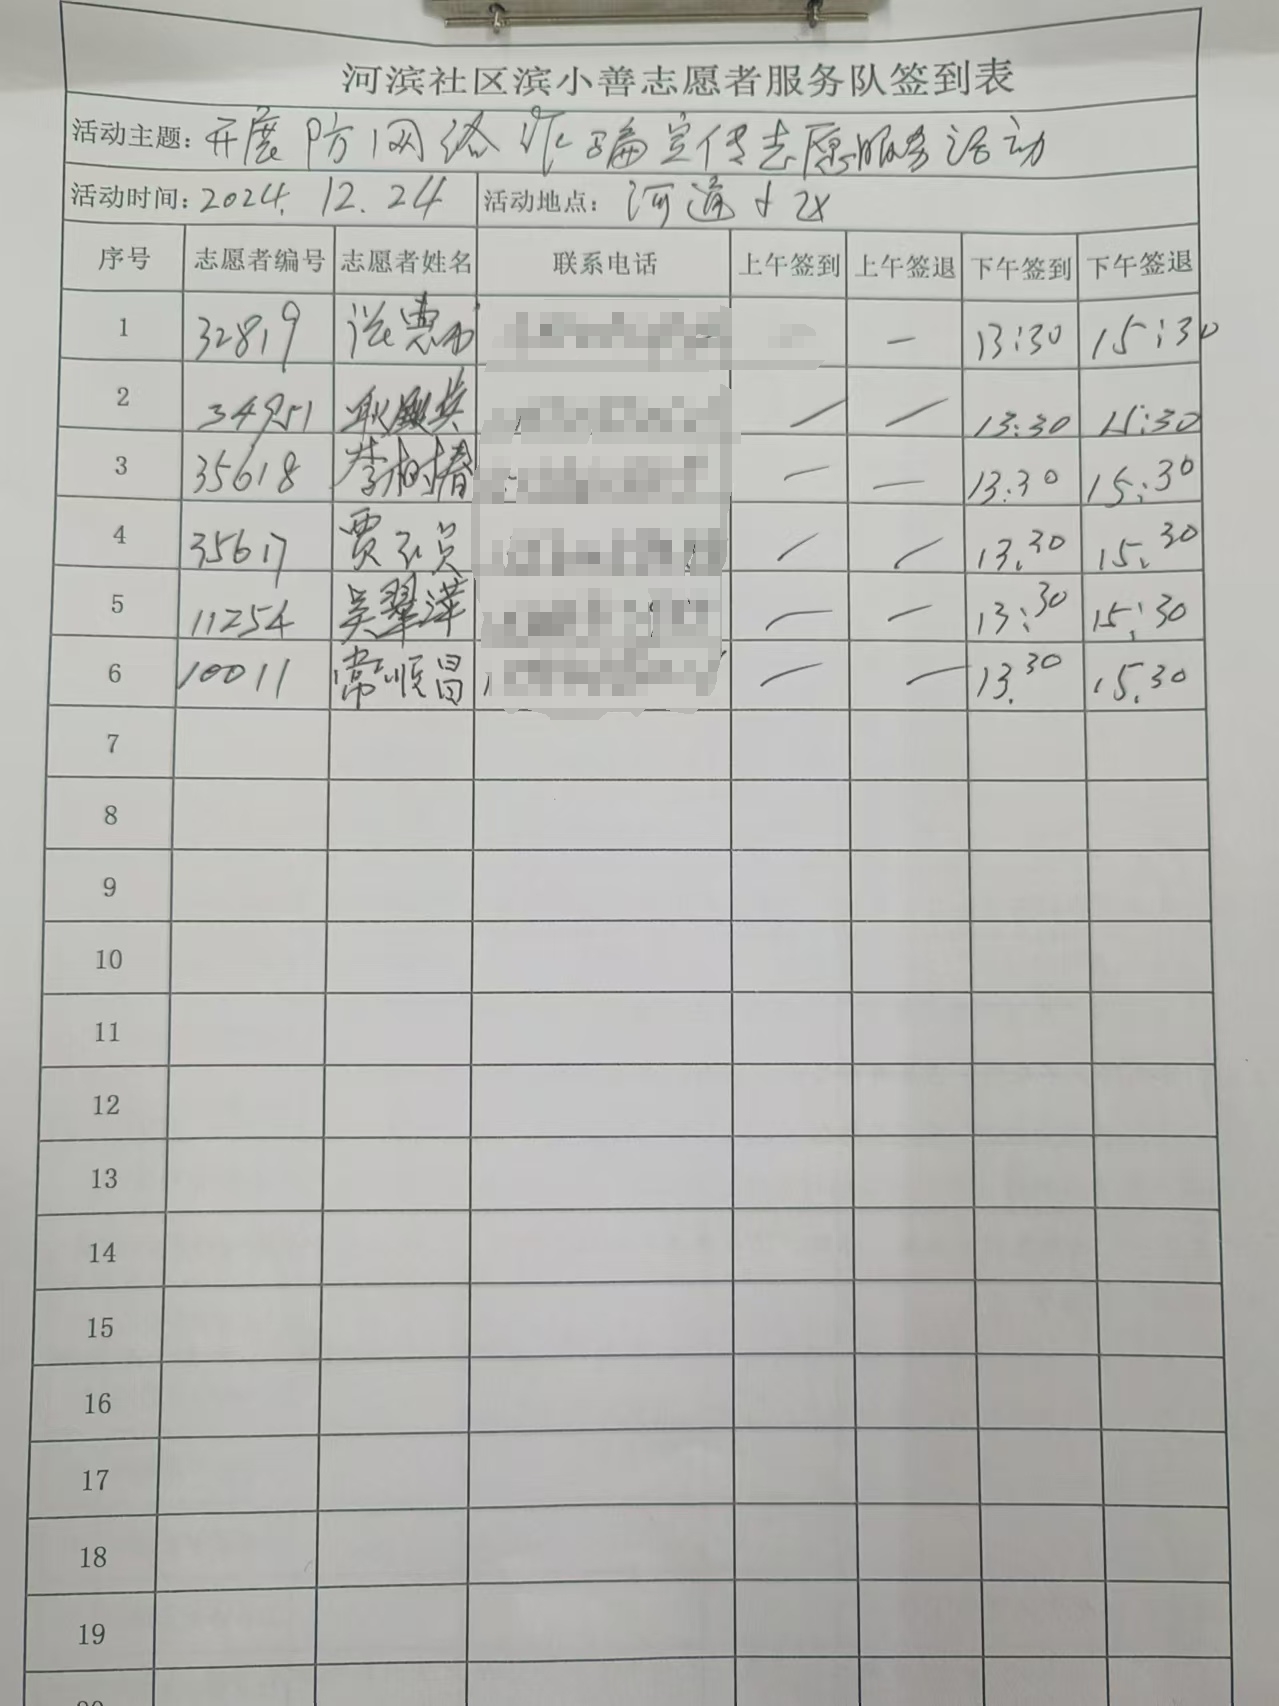 河滨社区滨小善志愿者服务队签到表
活动主题：开展防网络诈骗宣传志愿服务活动
活动时间：2024.12.24 活动地点：河道小区
序号 志愿者编号 志愿者姓名 联系电话 上午签到 上午签退 下午签到 下午签退
1 32819 — 13:30 15:30
2 34951 — — 13:30 15:30
3 35618 李树春 — — 13:30 15:30
4 35617 贾 — — 13:30 15:30
5 11254 吴翠萍 — — 13:30 15:30
6 10011 常顺昌 — — 13:30 15:30
7
8
9
10
11
12
13
14
15
16
17
18
19